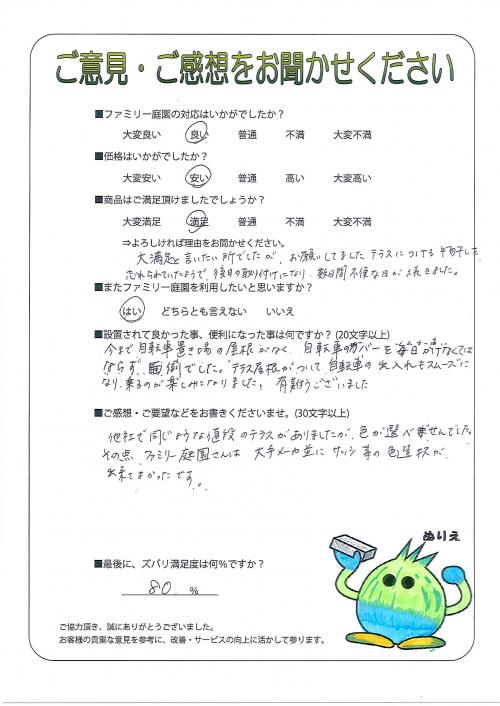 ご意見・ご感想をお聞かせください
■ファミリー庭園の対応はいかがでしたか？
大変良い 良い 普通 不満 大変不満
■価格はいかがでしたか？
大変安い 安い 普通 高い 大変高い
■商品はご満足頂けましたでしょうか？
大変満足 満足 普通 不満 大変不満
⇒よろしければ理由をお聞かせください。
大満足と言いたい所でしたが、お願いしてました テラスにつける 物干しを
忘れられていたようで、後日の取り付けになり、数日間不便な日が続きました。
■またファミリー庭園を利用したいと思いますか？
はい どちらとも言えない いいえ
■設置されて良かった事、便利になった事は何ですか？(20文字以上)
今まで、自転車置き場の屋根がなく、自転車のカバーを毎日かけなくては
ならず、面倒でした。テラス屋根がついて、自転車の出入れもスムーズに
なり、乗るのが楽しみになりました！ 有難うございました
■ご感想・ご要望などをお書きくださいませ。(30文字以上)
他社で同じような値段のテラスがありましたが、色が選べませんでした。
その点、ファミリー庭園さんは 大手メーカ並に サッシ等の色選択が
出来てよかったです。
ぬりえ
■最後に、ズバリ満足度は何%ですか？
80 %
ご協力頂き、誠にありがとうございました。
お客様の貴重な意見を参考に、改善・サービスの向上に活かして参ります。